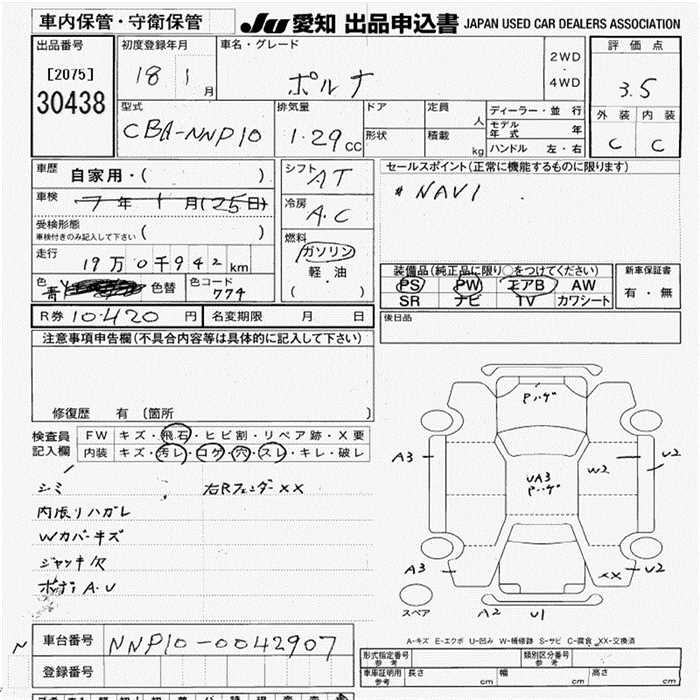 車内保管・守衛保管
JU 愛知 出品申込書 JAPAN USED CAR DEALERS ASSOCIATION
出品番号
[2075]
30438
初度登録年月
18 1 月
車名・グレード
ポルテ
2WD
・
4WD
評価点
3.5
外装 内装
C C
型式
CBA-NNP10
排気量
1.29 CC
ドア
形状
定員 人
積載 kg
ディーラー・並行
モデル年式 年
ハンドル 左・右
車歴
自家用・( )
車検
7年 1月(25日)
受検形態
車検付きのみ記入して下さい ( )
走行
19万0千942 km
色
青
色替
色コード
774
シフト
AT
冷房
A.C
燃料
ガソリン
軽油
( )
セールスポイント(正常に機能するものに限ります)
# NAVI
装備品(純正品に限り○をつけてください)
PS PW エアB AW
SR ナビ TV カワシート
新車保証書
有・無
後日品
R券 10.420 円
名変期限 月 日
注意事項申告欄(不具合内容等は具体的に記入して下さい)
修復歴 有 〔箇所 〕
検査員記入欄
FW キズ・飛石・ヒビ割・リペア跡・X要
内装 キズ・汚レ・コゲ・穴・スレ・キレ・破レ
シミ
右Rフェンダー××
内張リハガレ
Wカバーキズ
ジャッキ欠
ボデーA.U
Pハゲ
A3
W2
U2
UA3
Pハゲ
A3
××
U2
スペア
A2
U1
A-キズ E-エクボ U-凹み W-補修跡 S-サビ C-腐食 XX-交換済
N
車台番号
NNP10-0042907
登録番号
形式指定番号
参考
類別区分番号
参考
車庫証明用
参考
長さ cm
幅 cm
高さ cm